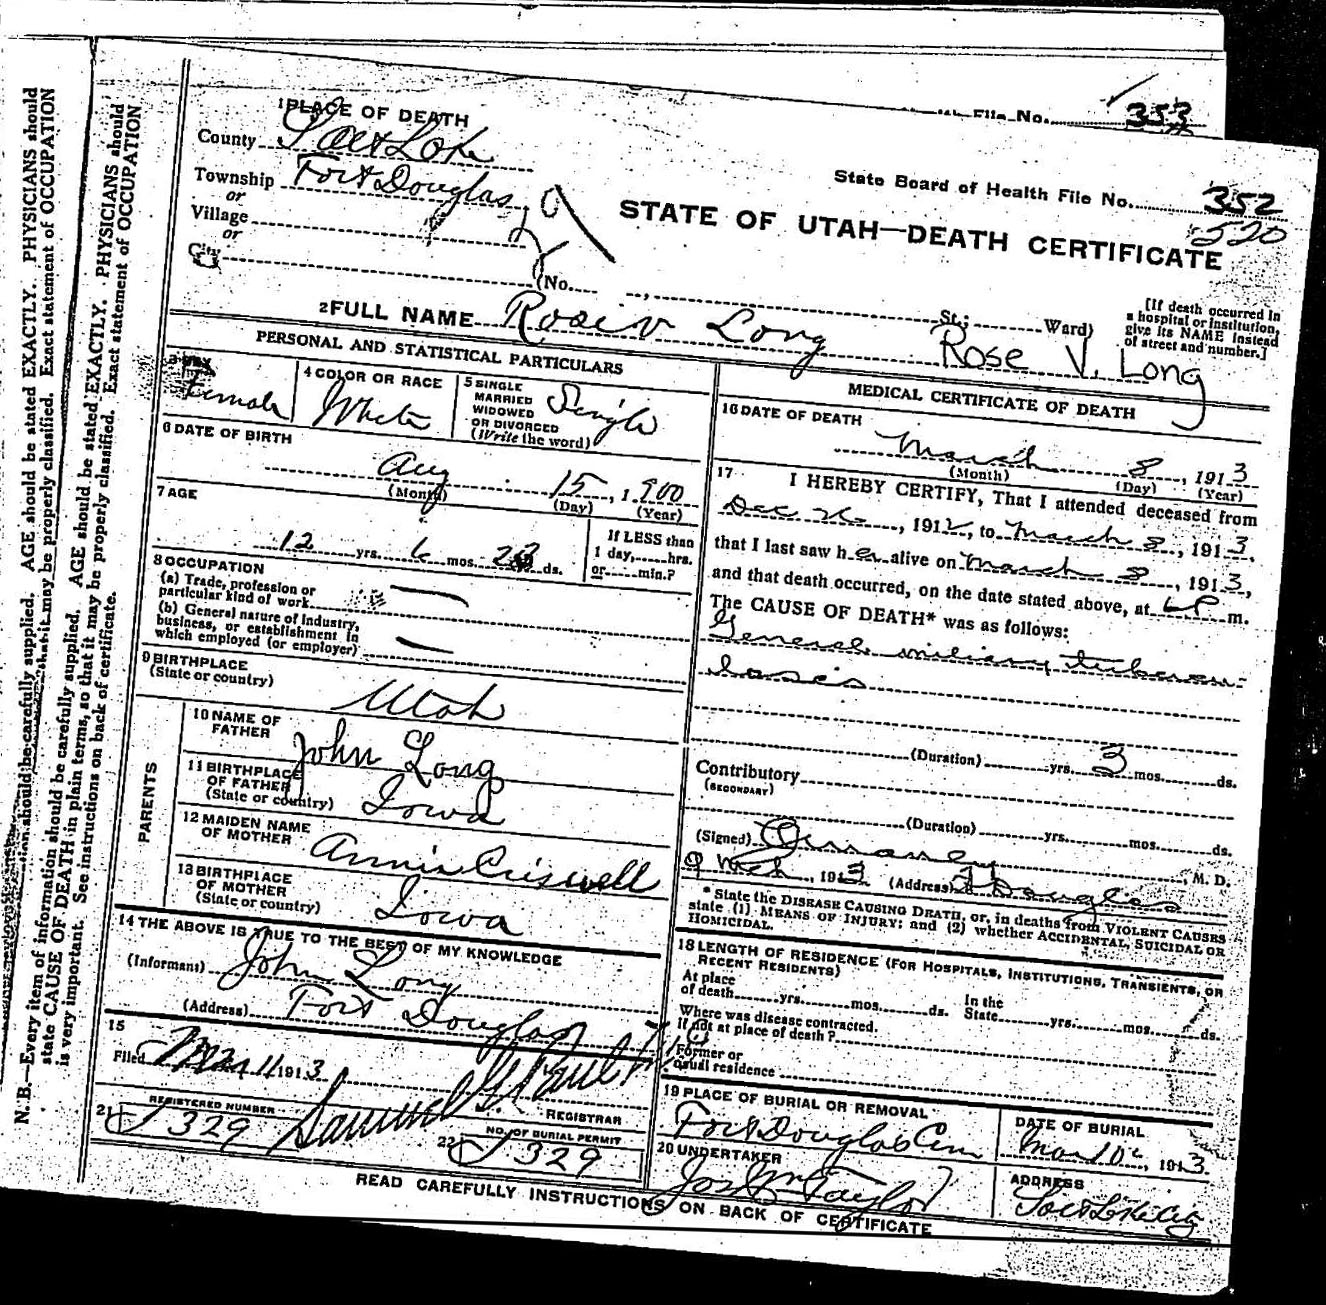 File No. 353
State Board of Health File No. 352
520
STATE OF UTAH—DEATH CERTIFICATE
1 PLACE OF DEATH
County Salt Lake
Township Fort Douglas
or
Village
or
City
(No. , St.; Ward)
[If death occurred in
a hospital or institution,
give its NAME instead
of street and number.]
2 FULL NAME Rose V Long Rose V. Long
PERSONAL AND STATISTICAL PARTICULARS
3 SEX
Female
4 COLOR OR RACE
White
5 SINGLE
MARRIED
WIDOWED
OR DIVORCED
(Write the word)
Single
6 DATE OF BIRTH
Aug 15, 1900
(Month) (Day) (Year)
7 AGE
12 yrs. 6 mos. 23 ds.
If LESS than
1 day, hrs.
or min.?
8 OCCUPATION
(a) Trade, profession or
particular kind of work
(b) General nature of industry,
business, or establishment in
which employed (or employer)
9 BIRTHPLACE
(State or country)
Utah
PARENTS
10 NAME OF
FATHER
John Long
11 BIRTHPLACE
OF FATHER
(State or country)
Iowa
12 MAIDEN NAME
OF MOTHER
Annie Criswell
13 BIRTHPLACE
OF MOTHER
(State or country)
Iowa
14 THE ABOVE IS TRUE TO THE BEST OF MY KNOWLEDGE
(Informant) John Long
(Address) Fort Douglas
15
Filed Mar 11 1913
Samuel G. Paul
REGISTRAR
21 REGISTERED NUMBER
329
22 NO. OF BURIAL PERMIT
329
MEDICAL CERTIFICATE OF DEATH
16 DATE OF DEATH
March 8, 1913
(Month) (Day) (Year)
17 I HEREBY CERTIFY, That I attended deceased from
Dec 26, 1912, to March 8, 1913,
that I last saw her alive on March 8, 1913,
and that death occurred, on the date stated above, at 6 P m.
The CAUSE OF DEATH* was as follows:
General miliary tubercu-
losis
(Duration) yrs. 3 mos. ds.
Contributory
(SECONDARY)
(Duration) yrs. mos. ds.
(Signed) M. D.
9 Mch, 1913 (Address) Ft Douglas
* State the DISEASE CAUSING DEATH, or, in deaths from VIOLENT CAUSES
state (1) MEANS OF INJURY; and (2) whether ACCIDENTAL, SUICIDAL OR
HOMICIDAL.
18 LENGTH OF RESIDENCE (FOR HOSPITALS, INSTITUTIONS, TRANSIENTS, OR
RECENT RESIDENTS)
At place
of death yrs. mos. ds.
In the
State yrs. mos. ds.
Where was disease contracted.
If not at place of death?
Former or
usual residence
19 PLACE OF BURIAL OR REMOVAL
Fort Douglas Cem
DATE OF BURIAL
Mar 10, 1913.
20 UNDERTAKER
Jos Wm Taylor
ADDRESS
Salt Lake City
READ CAREFULLY INSTRUCTIONS ON BACK OF CERTIFICATE
N. B.—Every item of information should be carefully supplied. AGE should be stated EXACTLY. PHYSICIANS should
state CAUSE OF DEATH in plain terms, so that it may be properly classified. Exact statement of OCCUPATION
is very important. See instructions on back of certificate.